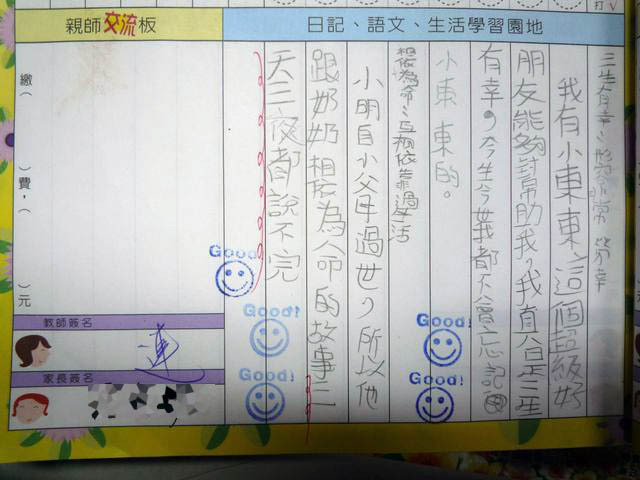 打√
親師交流板
日記、語文、生活學習園地
三生有幸:形容非常幸
我有小東東這個超級好
朋友能夠幫助我,我真是三生
有幸,今生今世我都不會忘記
小東東的。
相依為命:互相依靠過生活
小明自小父母過世,所以他
跟奶奶相依為人命的故事三
天三夜都說不完
Good!
Good!
Good!
Good!
Good!
繳( )費,( )元
教師簽名
連
家長簽名